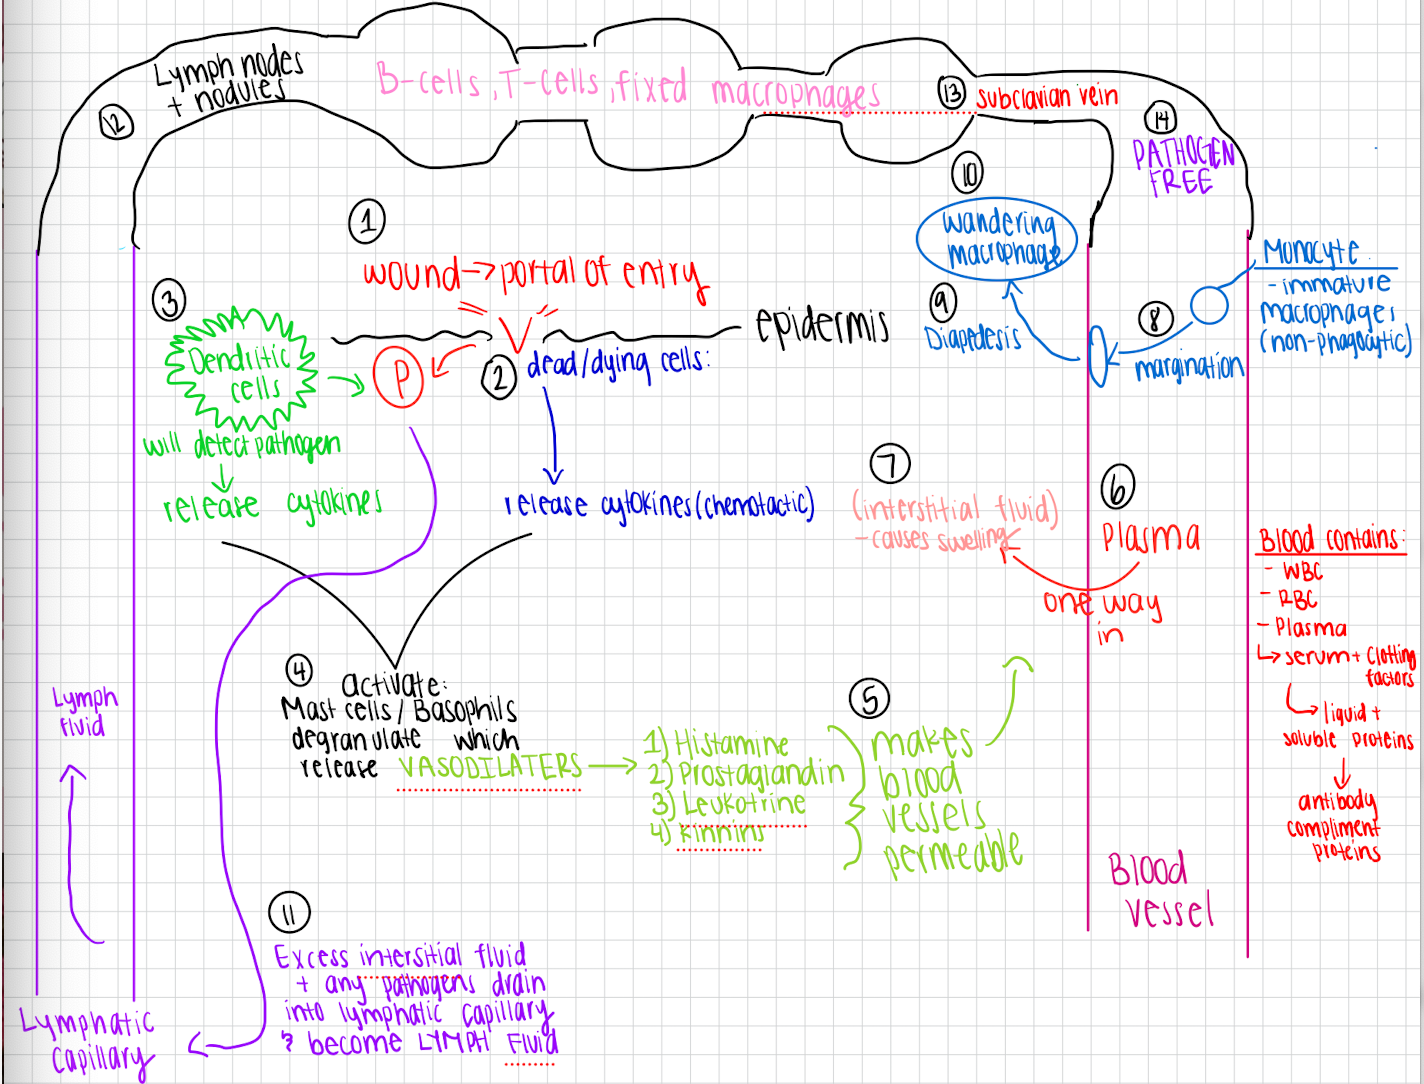 Lymph nodes
+ nodules
B-cells, T-cells, fixed macrophages
12
13
subclavian vein
14
PATHOGEN
FREE
1
wound → portal of entry
10
wandering
macrophage
Monocyte
- immature
macrophages
(non-phagocytic)
3
Dendritic
cells
will detect pathogen
↓
release cytokines
P
2
dead/dying cells:
epidermis
release cytokines (chemotactic)
9
Diapedesis
8
margination
7
(interstitial fluid)
- causes swelling
6
Plasma
one way
in
Blood contains:
- WBC
- RBC
- Plasma
↳ serum + Clotting
factors
↳ liquid +
soluble proteins
↓
antibody
compliment
proteins
4
activate:
Mast cells / Basophils
degranulate which
release VASODILATERS →
1) Histamine
2) Prostaglandin
3) Leukotrine
4) Kinnins
5
makes
blood
vessels
permeable
Blood
vessel
Lymph
fluid
11
Excess intersitial fluid
+ any pathogens drain
into lymphatic capillary
& become LYMPH Fluid
Lymphatic
capillary